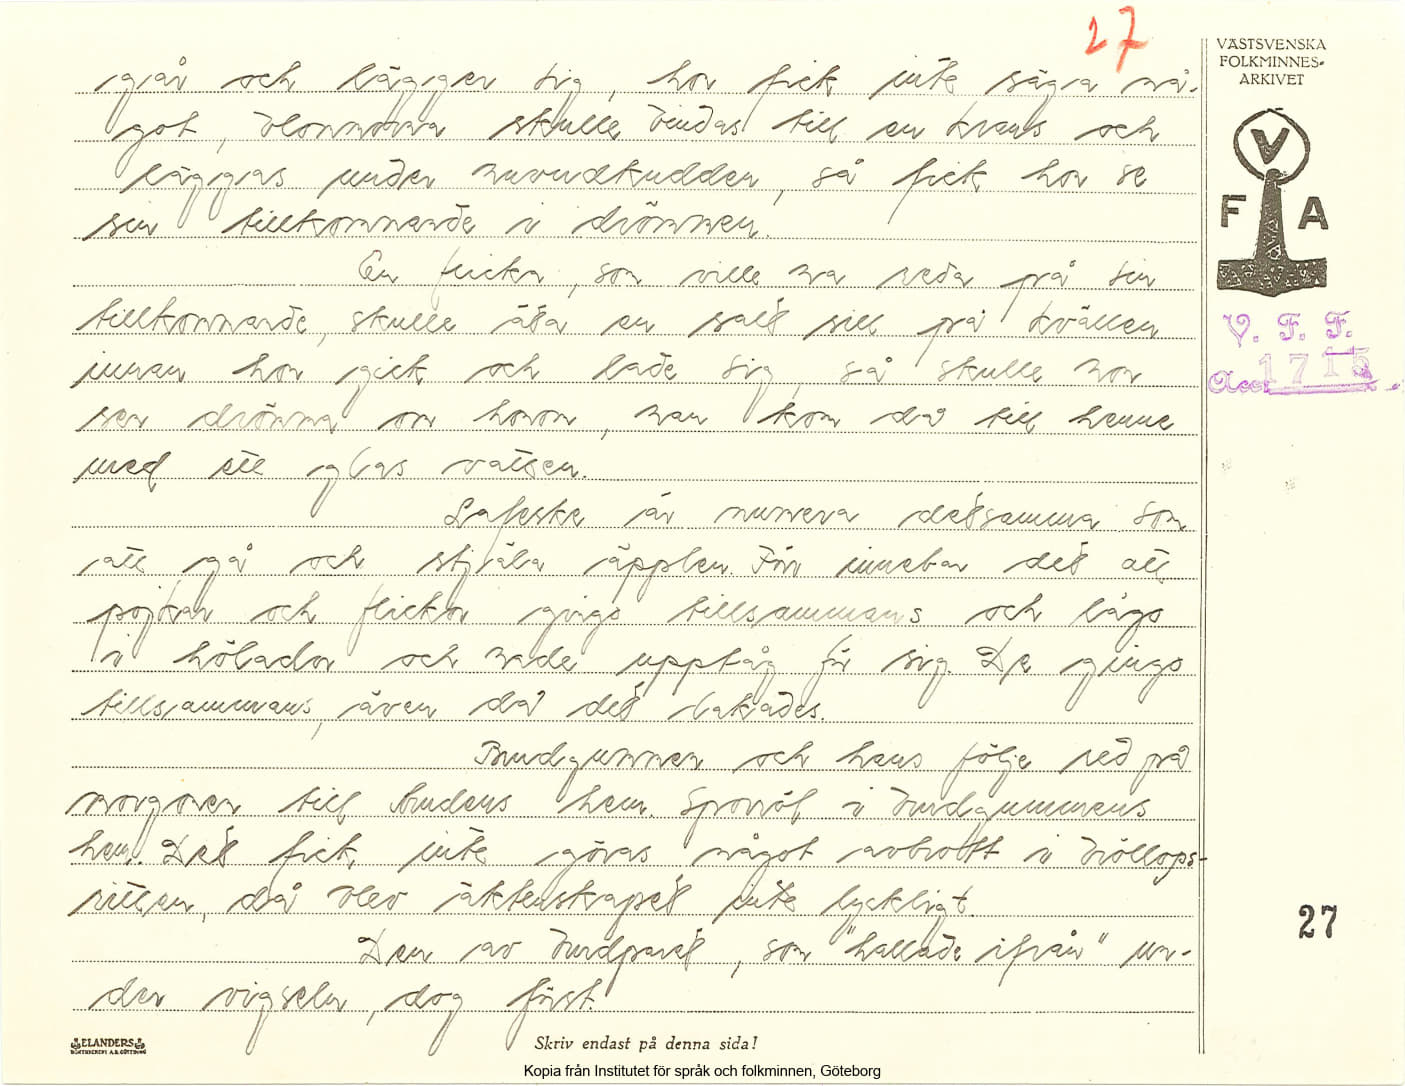 27
VÄSTSVENSKA
FOLKMINNES-
ARKIVET
V
F A
V. F. F.
Acc. 1715
går och lägger sig, hon fick inte säga nå-
got, blommorna skulle bindas till en krans och
läggas under huvudkudden, så fick hon se
sin tillkommande i drömmen.
En flicka, som ville ha reda på sin
tillkommande, skulle äta en salt sill på kvällen
innan hon gick och lade sig, så skulle hon
sen drömma om honom, han kom då till henne
med ett glas vatten.
Lafeske är numera detsamma som
att gå och stjäla äpplen. Förr innebar det att
pojkar och flickor gingo tillsammans och lågo
i hölador och hade upptåg för sig. De gingo
tillsammans, även då det bakades.
Brudgummen och hans följe red på
morgonen till brudens hem. Sporröl i brudgummens
hem. Det fick inte göras något avbrott i bröllops-
ritten, då blev äktenskapet inte lyckligt.
Den av brudparet, som "hallade ifrån" un-
der vigseln, dog först.
27
ELANDERS
BOKTRYCKERI A.B. GÖTEBORG
Skriv endast på denna sida!
Kopia från Institutet för språk och folkminnen, Göteborg